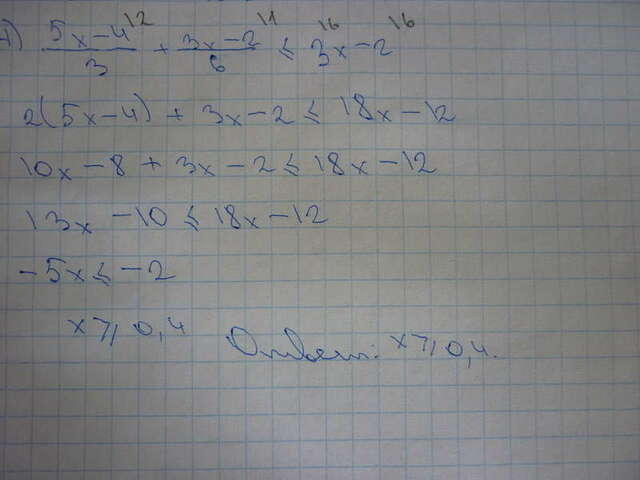 1) (5x-4)/3 |2 + (3x-2)/6 |1 ≤ 3x |6 - 2 |6
2(5x-4) + 3x-2 ≤ 18x-12
10x-8+3x-2 ≤ 18x-12
13x-10 ≤ 18x-12
-5x ≤ -2
x ≥ 0,4 Ответ: x ≥ 0,4.